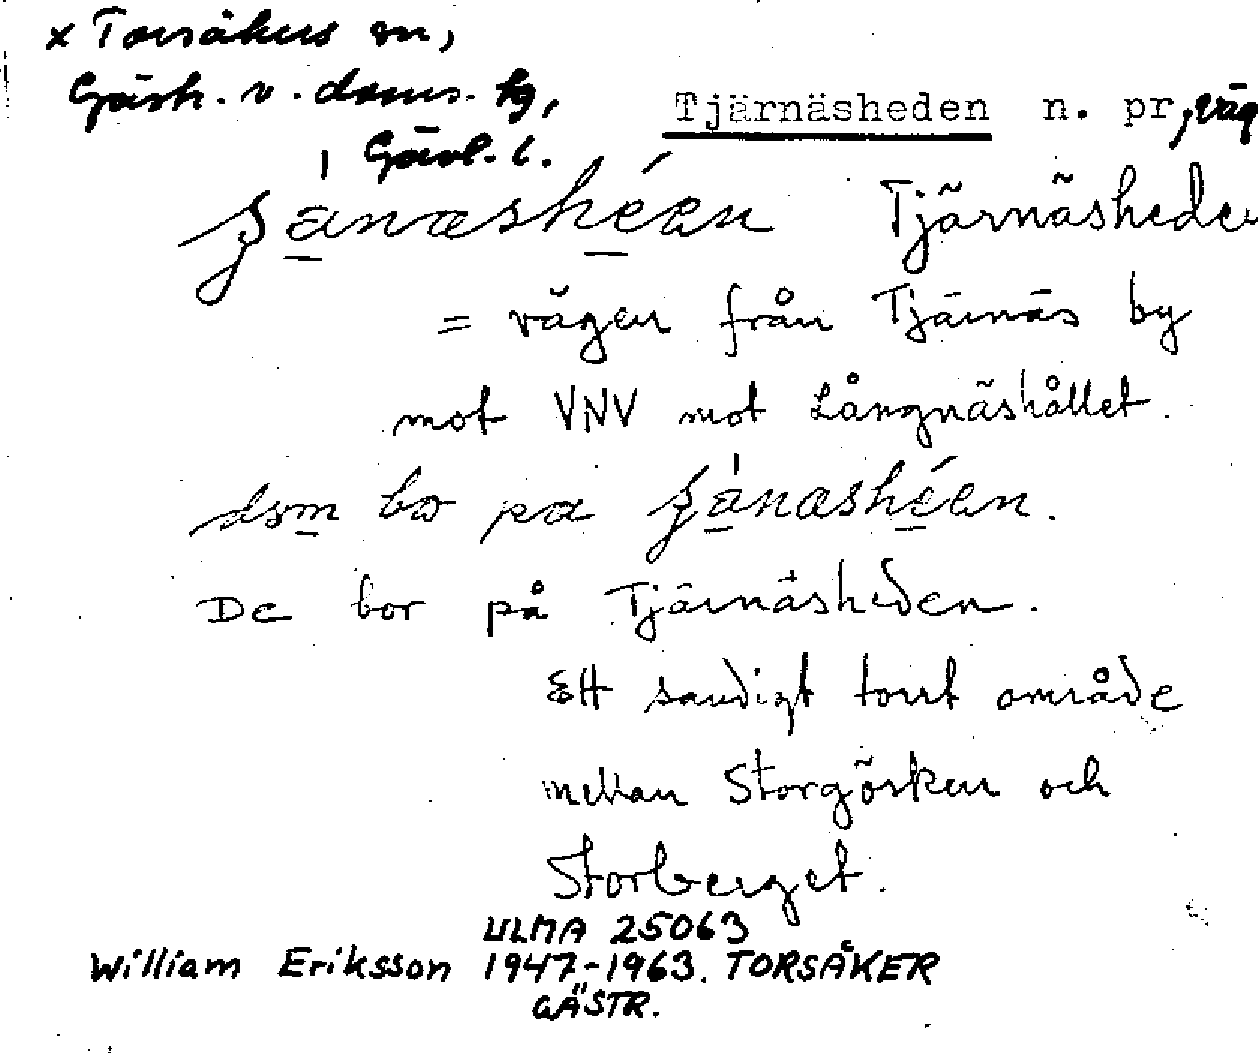 x Torsåkers sn,
Gästr. v. doms. tg,
Gävl. l.
Tjärnäsheden n. pr, väg
Tjärnäsheden
= vägen från Tjärnäs by
mot VNV mot Långnäshållet.
dsm bo pa
De bor på Tjärnäsheden.
Ett sandigt torrt område
mellan Storgösken och
Storberget.
ULMA 25063
William Eriksson 1947-1963. TORSÅKER
GÄSTR.